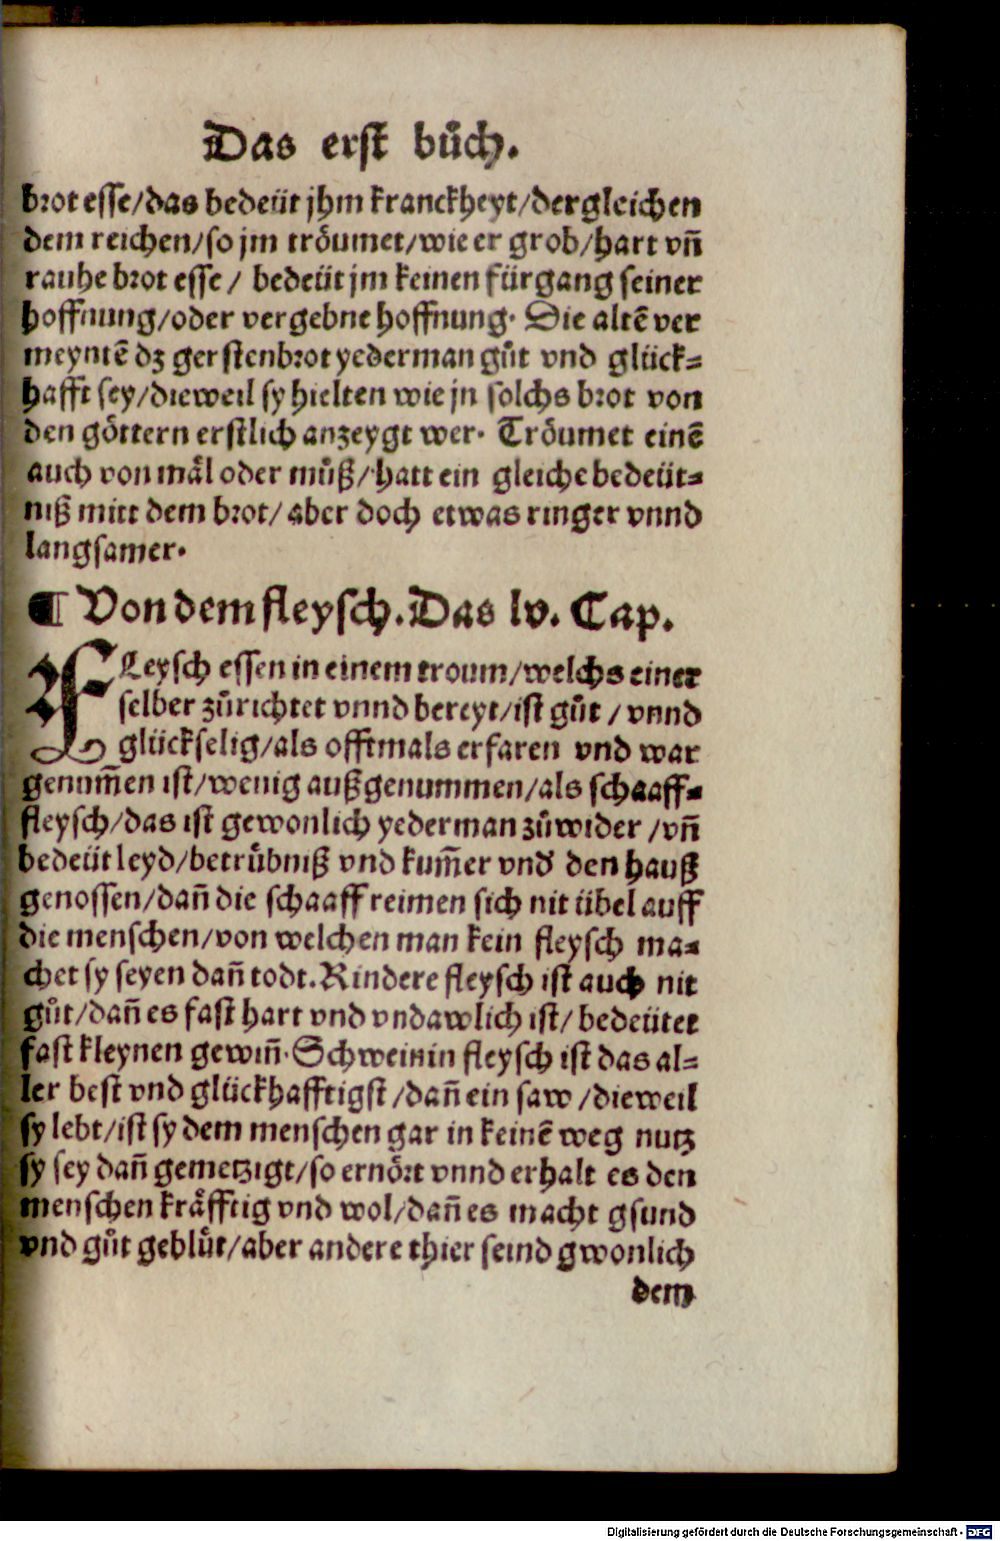 Das erst bůch.
brot esse/das bedeüt jhm kranckheyt/dergleichen
dem reichen/so jm tröumet/wie er grob/hart vñ
rauhe brot esse / bedeüt jm keinen fürgang seiner
hoffnung/oder vergebne hoffnung. Die altē ver
meyntē dz gerstenbrot yederman gůt vnd glück⸗
hafft sey/dieweil sy hielten wie jn solchs brot von
den göttern erstlich anzeygt wer. Tröumet einē
auch von mäl oder můß/hatt ein gleiche bedeüt⸗
niß mitt dem brot/ aber doch etwas ringer vnnd
langsamer.
¶ Von dem fleysch. Das lv. Cap.
FLeysch essen in einem troum/welchs einer
selber zůrichtet vnnd bereyt/ist gůt / vnnd
glückselig/als offtmals erfaren vnd war
genum̄en ist/wenig außgenummen/als schaaff⸗
fleysch/das ist gewonlich yederman zůwider /vñ
bedeüt leyd/betrůbniß vnd kum̄er vnd̓ den hauß
genossen/dañ die schaaff reimen sich nit übel auff
die menschen/von welchen man kein fleysch ma⸗
chet sy seyen dañ todt. Rindere fleysch ist auch nit
gůt/dañ es fast hart vnd vndawlich ist/ bedeütet
fast kleynen gewiñ. Schweinin fleysch ist das al⸗
ler best vnd glückhafftigst /dañ ein saw /dieweil
sy lebt/ist sy dem menschen gar in keinē weg nutz
sy sey dañ gemetzigt/so ernört vnnd erhalt es den
menschen kräfftig vnd wol/dañ es macht gsund
vnd gůt geblůt/aber andere thier seind gwonlich
dem
Digitalisierung gefördert durch die Deutsche Forschungsgemeinschaft - DFG